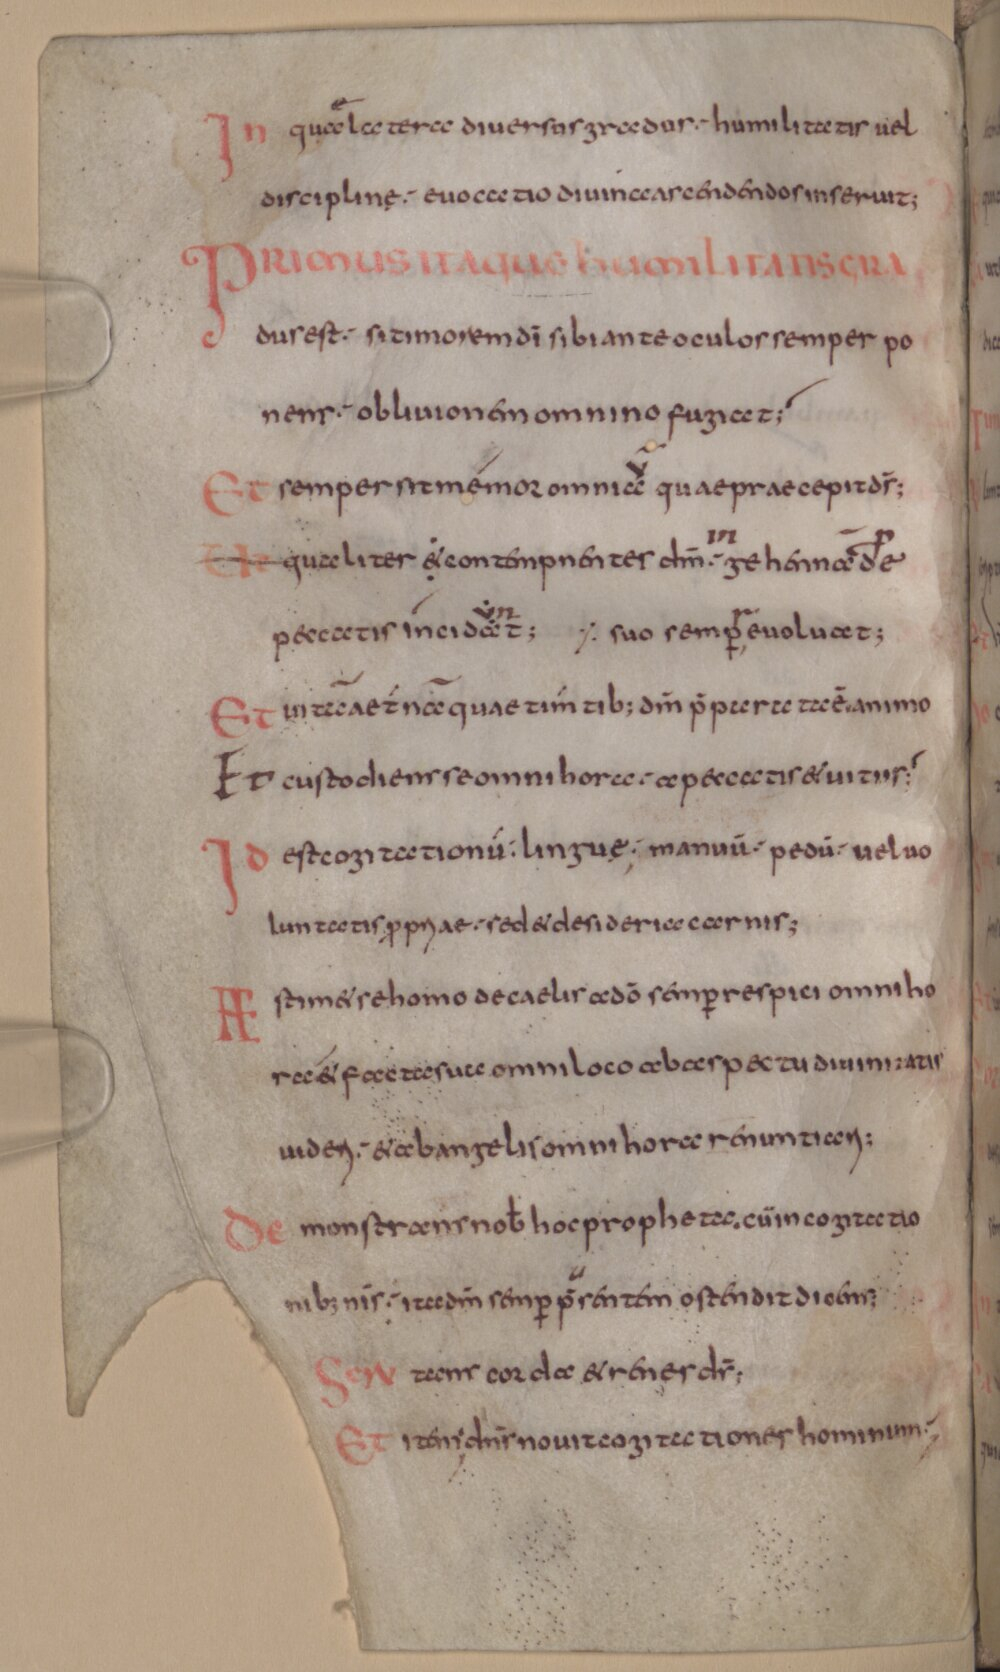 In quae latera diversos gradus · humilitatis vel
discipline · evocatio divina ascendendos inseruit;
PRIMUS ITAQUE HUMILITATIS GRA
dus est · si timorem dī sibi ante oculos semper po
nens · oblivionem omnino fugiat;
Et semper sit memor omnia quae praecepit ds̄;
qualiter & contempnentes dm̄ · in gehenna de
peccatis incidunt; ⁒ suo semper evoluat;
Et vita aet̄na quae timentib; dm̄ p̄parata ē animo
Et custodiens se omni hora · a peccatis & vitiis;
Id est cogitationū · lingue · manuū · pedū · vel vo
luntatis propriae · sed & desideria carnis;
Aestim& se homo de caelis a dō semper respici omni ho
ra & facta sua omni loco ab aspectu divinitatis
videri · & ab angelis omni hora renuntiari;
Demonstrans nob̄ hoc propheta. cū in cogitatio
nib; nr̄is · ita dm̄ semper p̄sentem ostendit dicens;
Scrutans corda & renes ds̄;
Et item dn̄s novit cogitationes hominum;